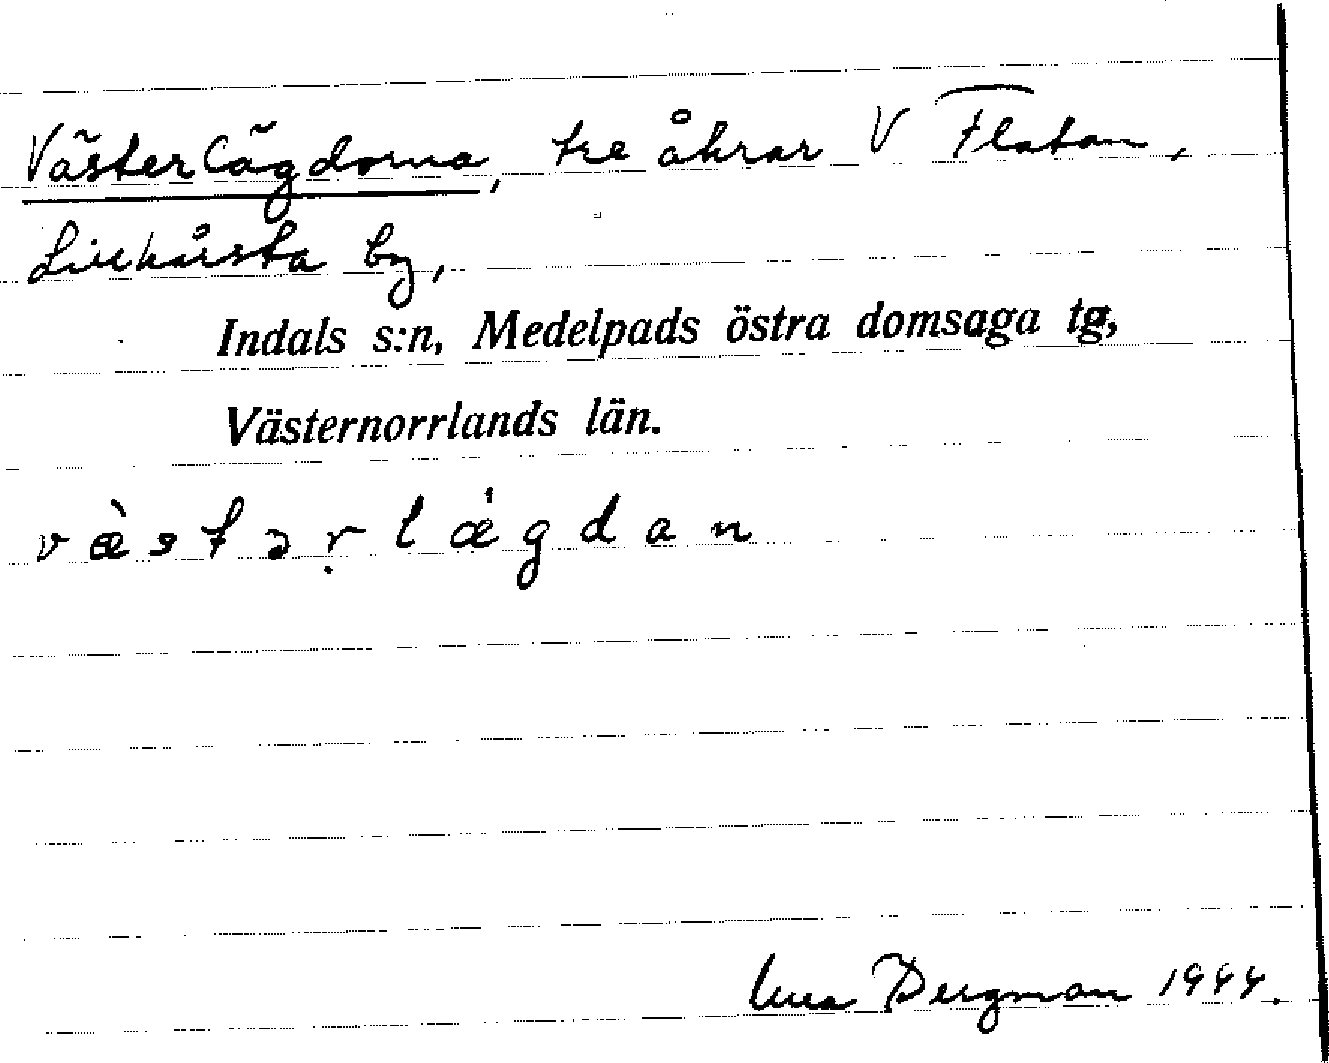 Västerlägdorna, tre åkrar V Flatan,
Livehårsta by,
Indals s:n, Medelpads östra domsaga tg,
Västernorrlands län.
væ̀stəṛlǽgdan
Bergman 1944.